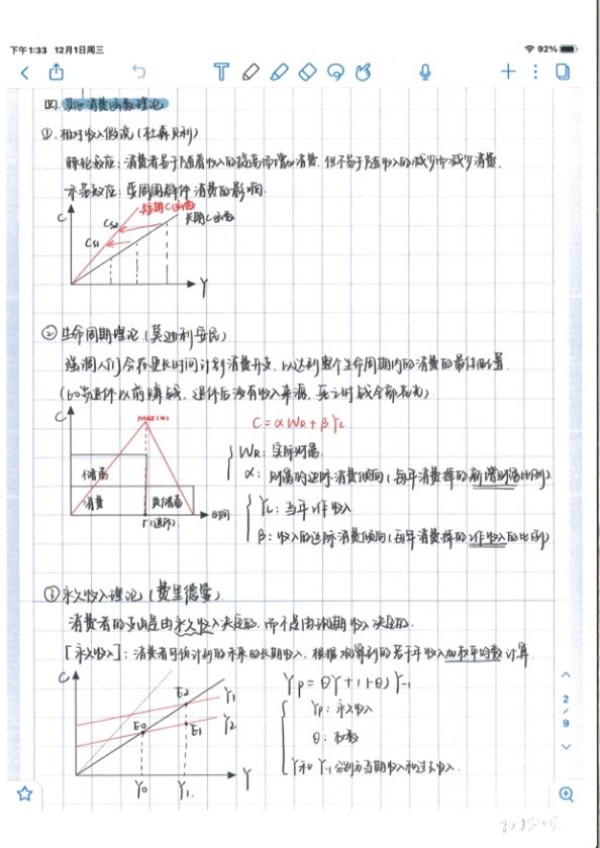 下午1:33 12月1日周三
92%
四. 其他消费函数理论
①. 相对收入假说(杜森贝利)
棘轮效应: 消费者易于随着收入的提高而增加消费, 但不易于随收入的减少而减少消费.
示范效应: 受周围群体消费的影响.
C
短期C函数
长期C函数
CS2
CS1
Y
② 生命周期理论(莫迪利安民)
强调人们会在更长时间计划消费开支, 以达到整个生命周期内的消费的最佳配置.
(60岁退休以前赚钱, 退休后没有收入来源, 死之时钱全部花光)
C
C=αWR+βYL
WR: 实际财富
α: 财富的边际消费倾向(每年消费掉的
储蓄
消费
负储蓄
r(退休)
时间
YL: 当年工作收入
β: 收入的边际消费倾向(每年消费掉的工作收入的比例)
③ 永久收入理论(费里德曼)
消费者的支出是由永久收入决定的. 而不是由现期收入决定的.
[永久收入]: 消费者可预计到的未来的长期收入, 根据观察到的若干年收入加权平均数计算.
C
E2
Y1
E0
E1
Y2
Y
Y0
Y1
Yp=θY+(1-θ)Y-1
Yp: 永久收入
θ: 权数
Y和Y-1分别为当期收入和过去收入.
2/9